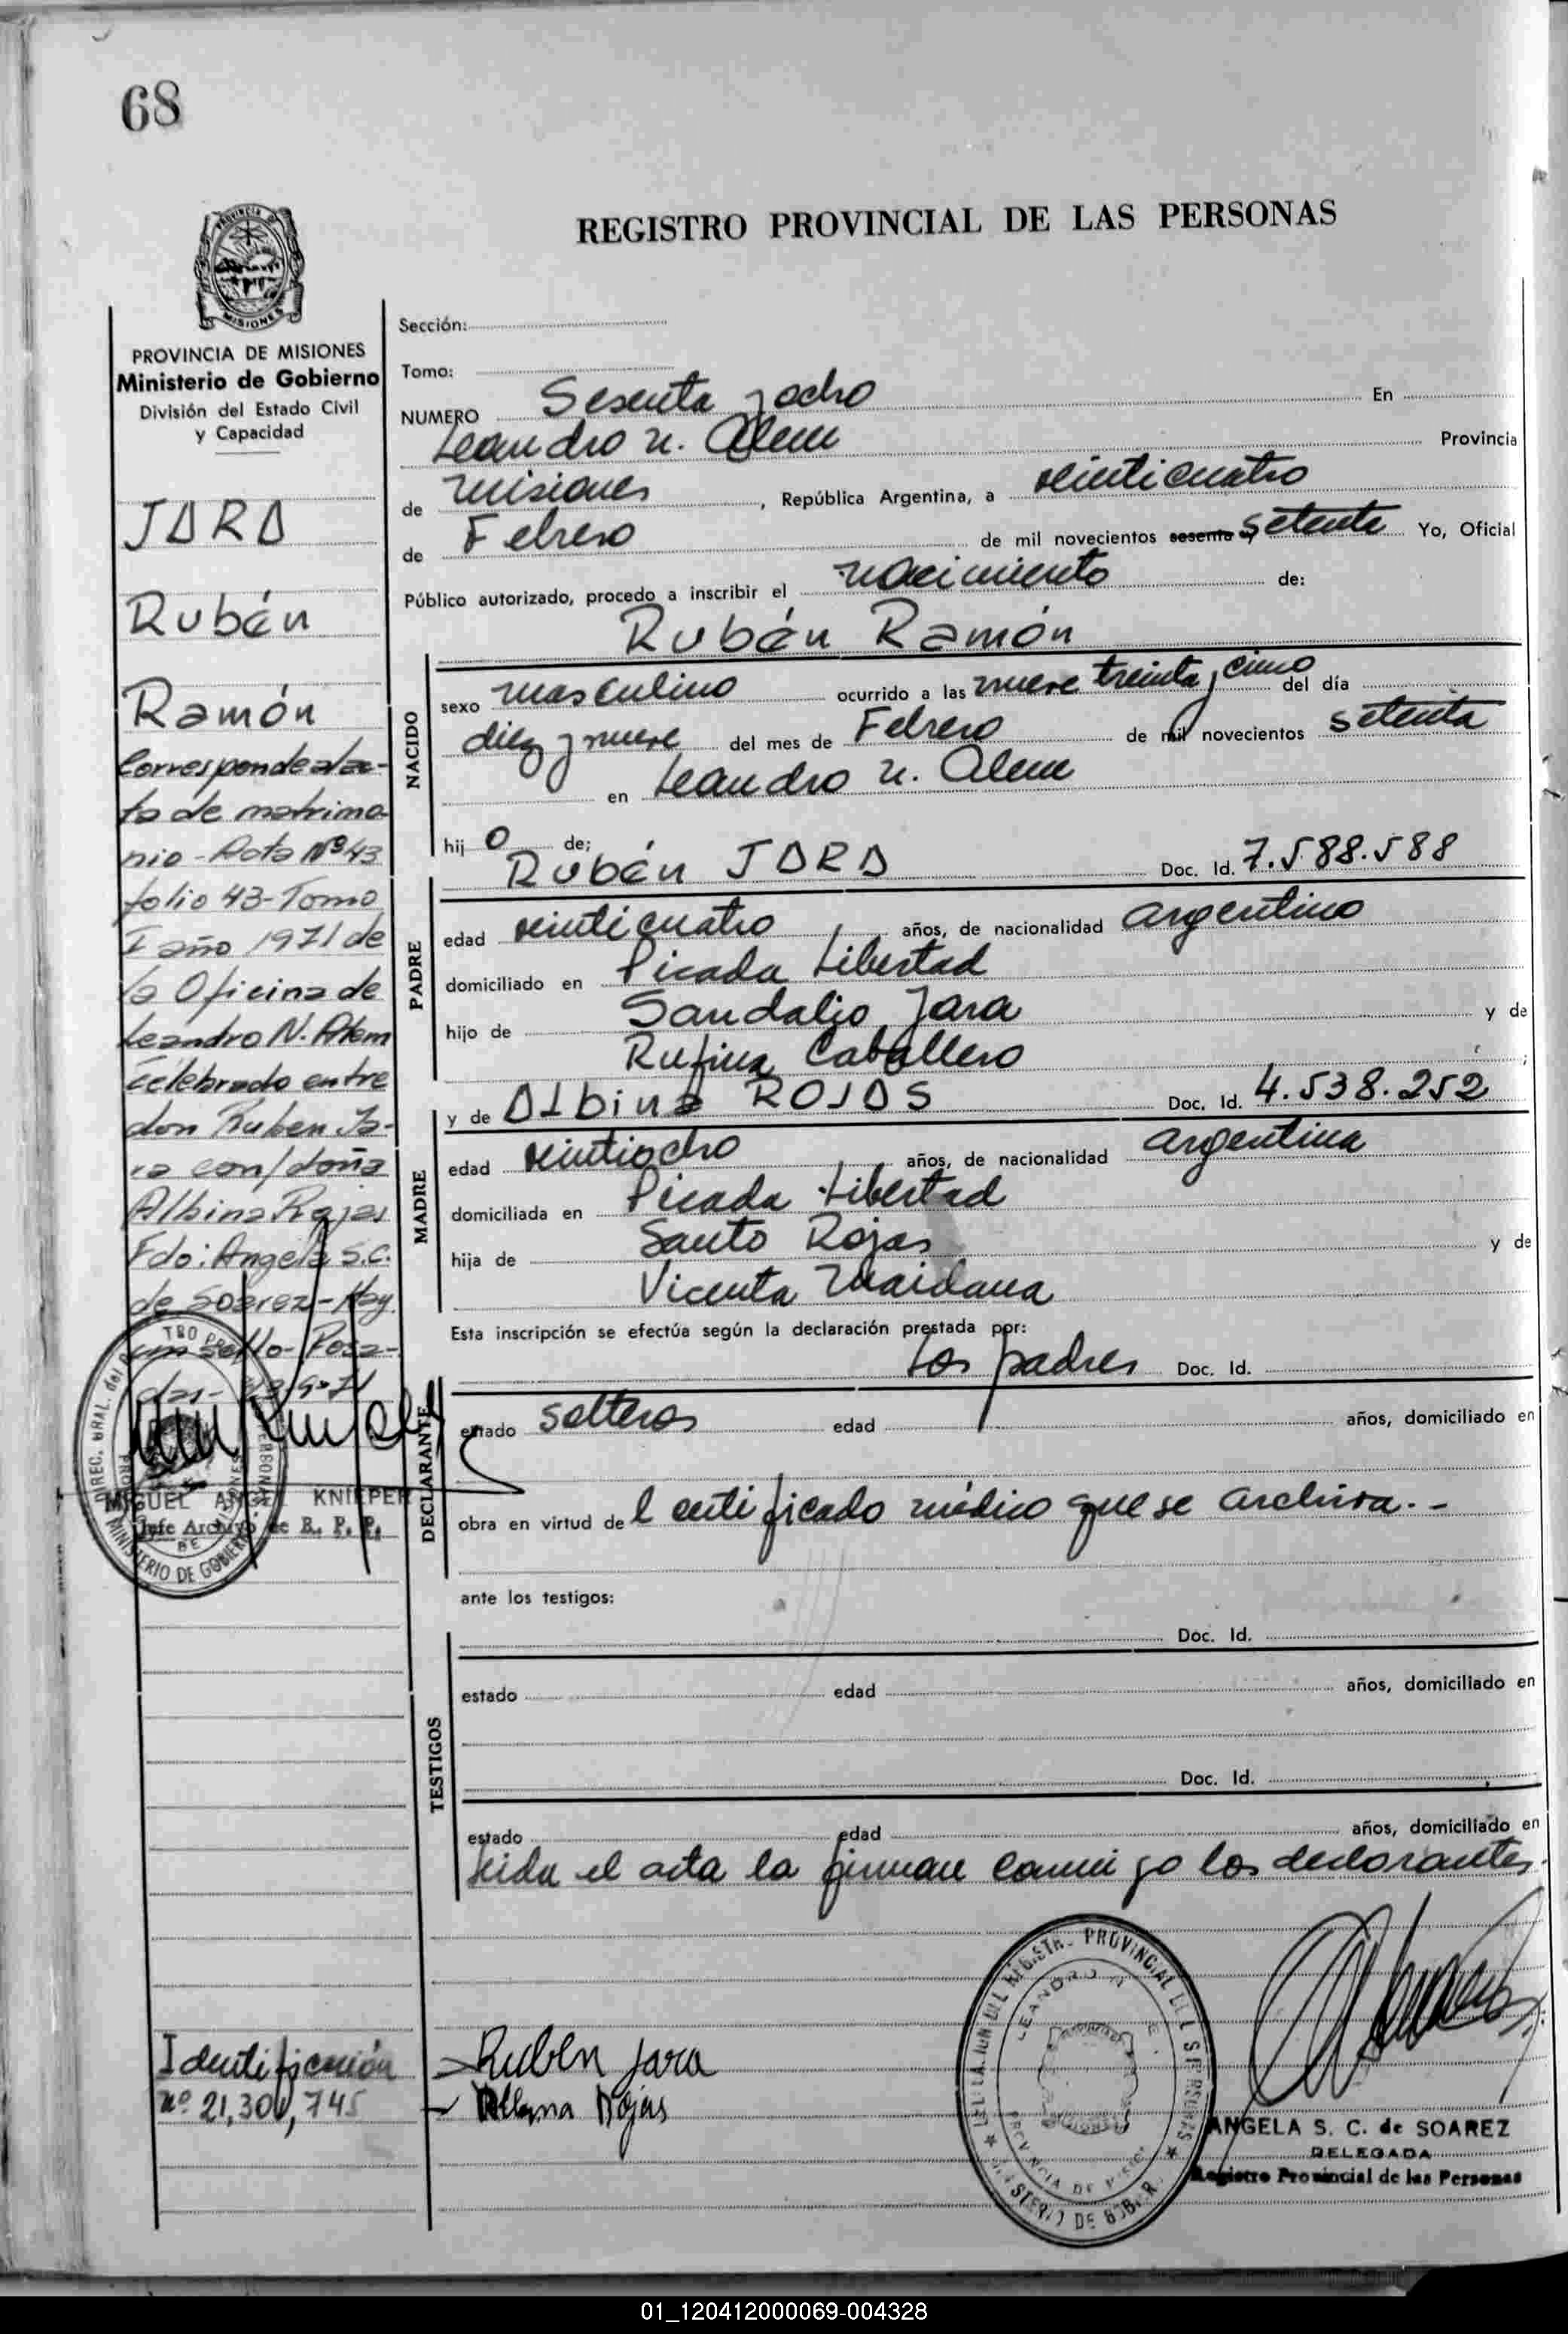 68
REGISTRO PROVINCIAL DE LAS PERSONAS
PROVINCIA DE MISIONES
Ministerio de Gobierno
División del Estado Civil
y Capacidad
JARA
Rubén
Ramón
Corresponde al ac-
ta de matrimo-
nio - Acta Nº 43
folio 43 - Tomo
I año 1971 de
la Oficina de
Leandro N. Alem
Celebrado entre
don Ruben Ja-
ra con/doña
Albina Rojas
Fdo: Angela S.C.
de Soarez - Hay
un sello - Posa-
das -
MIGUEL ANGEL KNIEPER
Jefe Archivo de R. P. P.
Identificación
nº 21,301,745
Sección:
Tomo:
NUMERO Sesenta y ocho En
Leandro N. Alem Provincia
de Misiones, República Argentina, a veinticuatro
de Febrero de mil novecientos sesenta y setenta Yo, Oficial
Público autorizado, procedo a inscribir el nacimiento de:
Rubén Ramón
NACIDO
sexo masculino ocurrido a las nueve treinta y cinco del día
diez y nueve del mes de Febrero de mil novecientos setenta
en Leandro N. Alem
hij o de;
Rubén JARA Doc. Id. 7.588.588
PADRE
edad veinticuatro años, de nacionalidad argentino
domiciliado en Picada Libertad
hijo de Sandalio Jara y de
Rufina Caballero
y de Albina ROJAS Doc. Id. 4.538.252
MADRE
edad veintiocho años, de nacionalidad argentina
domiciliada en Picada Libertad
hija de Santo Rojas y de
Vicenta Maidana
Esta inscripción se efectúa según la declaración prestada por:
Los padres Doc. Id.
DECLARANTE
estado solteros edad años, domiciliado en
obra en virtud del certificado médico que se archiva.-
ante los testigos:
Doc. Id.
TESTIGOS
estado edad años, domiciliado en
Doc. Id.
estado edad años, domiciliado en
Leida el acta la firman conmigo los declarantes.
Ruben Jara
Albina Rojas
ANGELA S. C. de SOAREZ
DELEGADA
Registro Provincial de las Personas
01_120412000069-004328